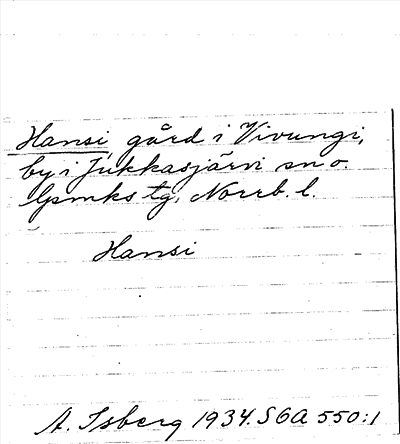 Hansi, gård i Vivungi,
by i Jukkasjärvi sn o.
lpmks tg, Norrb. l.
Hansi
A. Isberg 1934. SOA 550:1